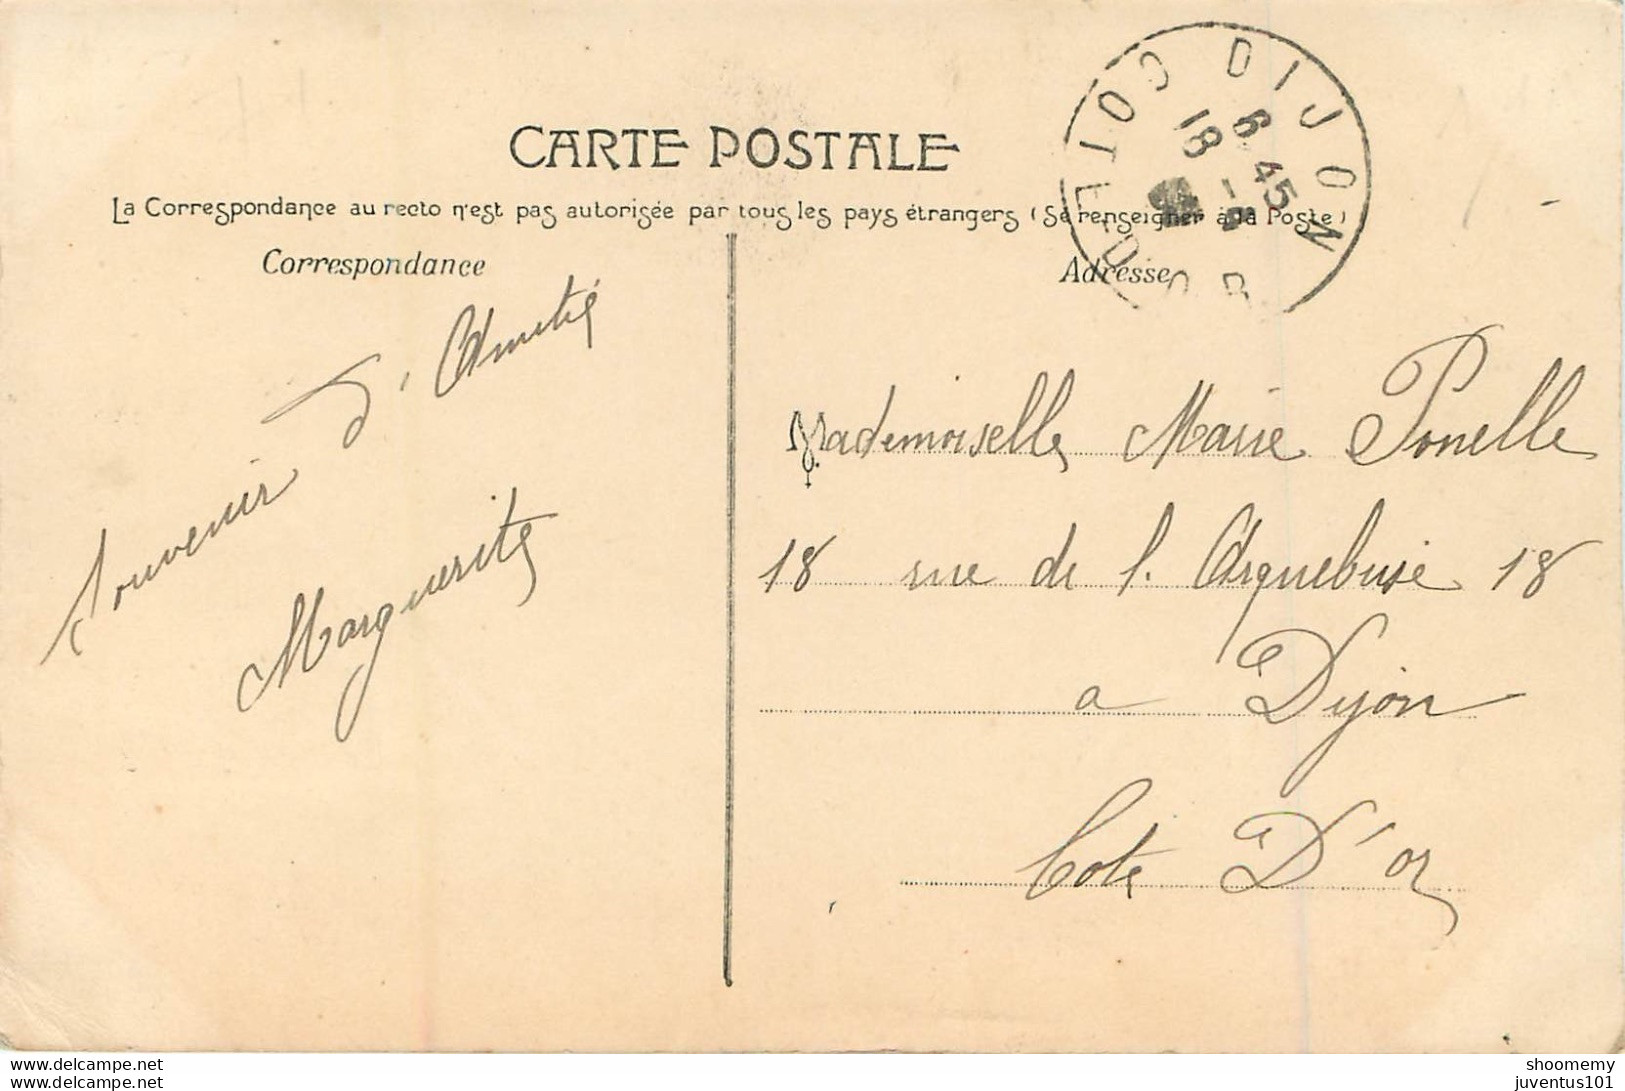 CARTE POSTALE
La Correspondance au recto n'est pas autorisée par tous les pays étrangers (Se renseigner à la Poste)
Correspondance
Adresse
DIJON
COTE-D'OR
6 45
18 - 8
Souvenir d'Amitié
Marguerite
Mademoiselle Marie Ponelle
18 rue de l'Arquebuse 18
a Dijon
Cote D'or
https://www.delcampe.net
shoomemy
https://www.delcampe.net
juventus101